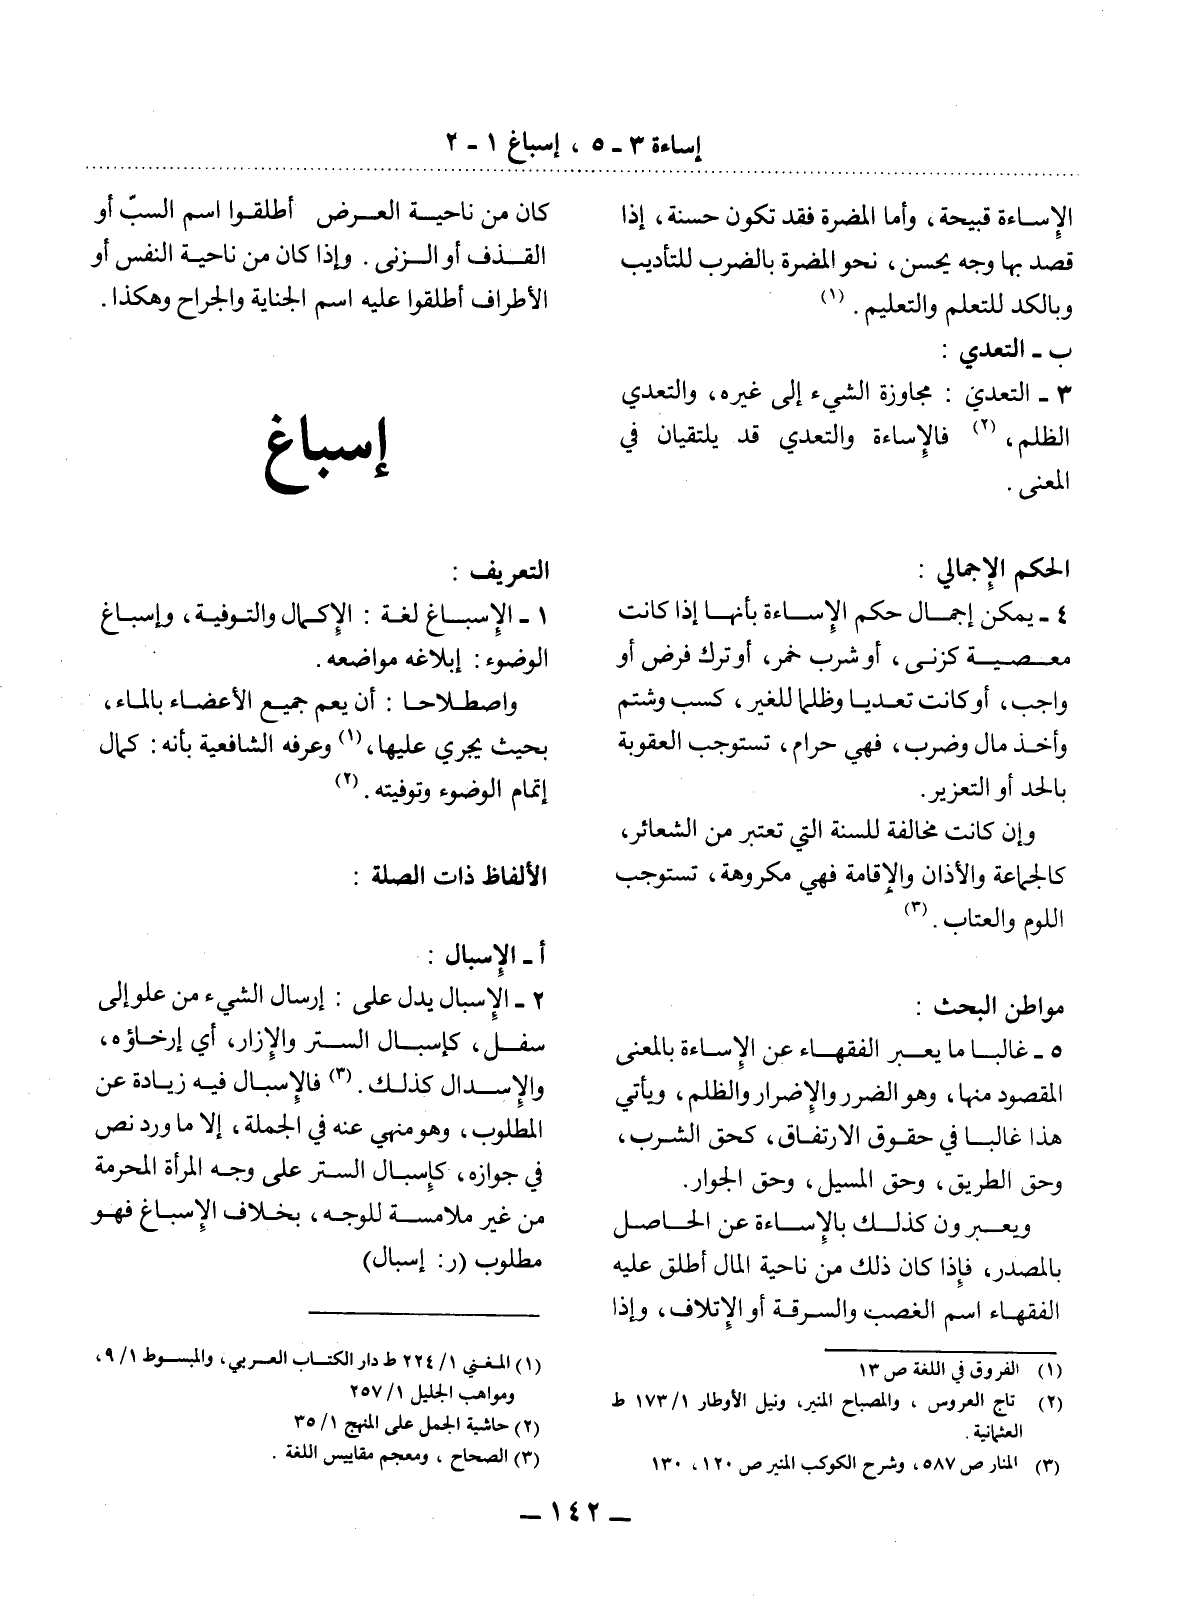 إساءة ٣ - ٥ ، إسباغ ١ - ٢
الإساءة قبيحة، وأما المضرة فقد تكون حسنة، إذا
قصد بها وجه يحسن، نحو المضرة بالضرب للتأديب
وبالكد للتعلم والتعليم . (١)
ب - التعدي :
٣ - التعدي : مجاوزة الشيء إلى غيره، والتعدي
الظلم، (٢) فالإساءة والتعدي قد يلتقيان في
المعنى .
الحكم الإجمالي :
٤ - يمكن إجمال حكم الإساءة بأنها إذا كانت
معصية كزنى، أو شرب خمر، أو ترك فرض أو
واجب، أو كانت تعديا وظلما للغير، كسب وشتم
وأخذ مال وضرب، فهي حرام، تستوجب العقوبة
بالحد أو التعزير.
وإن كانت مخالفة للسنة التي تعتبر من الشعائر،
كالجماعة والأذان والإقامة فهي مكروهة، تستوجب
اللوم والعتاب . (٣)
مواطن البحث :
٥ - غالبا ما يعبر الفقهاء عن الإساءة بالمعنى
المقصود منها، وهو الضرر والإضرار والظلم، ويأتي
هذا غالبا في حقوق الارتفاق، كحق الشرب،
وحق الطريق، وحق المسيل، وحق الجوار.
ويعبرون كذلك بالإساءة عن الحاصل
بالمصدر، فإذا كان ذلك من ناحية المال أطلق عليه
الفقهاء اسم الغصب والسرقة أو الإتلاف، وإذا
(١) الفروق في اللغة ص ١٣
(٢) تاج العروس ، والمصباح المنير، ونيل الأوطار ١/ ١٧٣ ط
العثمانية .
(٣) المنار ص ٥٨٧، وشرح الكوكب المنير ص ١٢٠، ١٣٠
كان من ناحية العرض أطلقوا اسم السبّ أو
القذف أو الزنى . وإذا كان من ناحية النفس أو
الأطراف أطلقوا عليه اسم الجناية والجراح وهكذا .
إسباغ
التعريف :
١ - الإسباغ لغة : الإكمال والتوفية، وإسباغ
الوضوء : إبلاغه مواضعه .
واصطلاحا : أن يعم جميع الأعضاء بالماء،
بحيث يجري عليها، (١) وعرفه الشافعية بأنه : كمال
إتمام الوضوء وتوفيته . (٢)
الألفاظ ذات الصلة :
أ - الإسبال :
٢ - الإسبال يدل على : إرسال الشيء من علو إلى
سفل، كإسبال الستر والإزار، أي إرخاؤه،
والإسدال كذلك . (٣) فالإسبال فيه زيادة عن
المطلوب، وهو منهي عنه في الجملة، إلا ما ورد نص
في جوازه، كإسبال الستر على وجه المرأة المحرمة
من غير ملامسة للوجه، بخلاف الإسباغ فهو
مطلوب (ر: إسبال)
(١) المغني ١/ ٢٢٤ ط دار الكتاب العربي، والمبسوط ١/ ٩،
ومواهب الجليل ١/ ٢٥٧
(٢) حاشية الجمل على المنهج ١/ ٣٥
(٣) الصحاح ، ومعجم مقاييس اللغة .
ـ ١٤٢ ـ